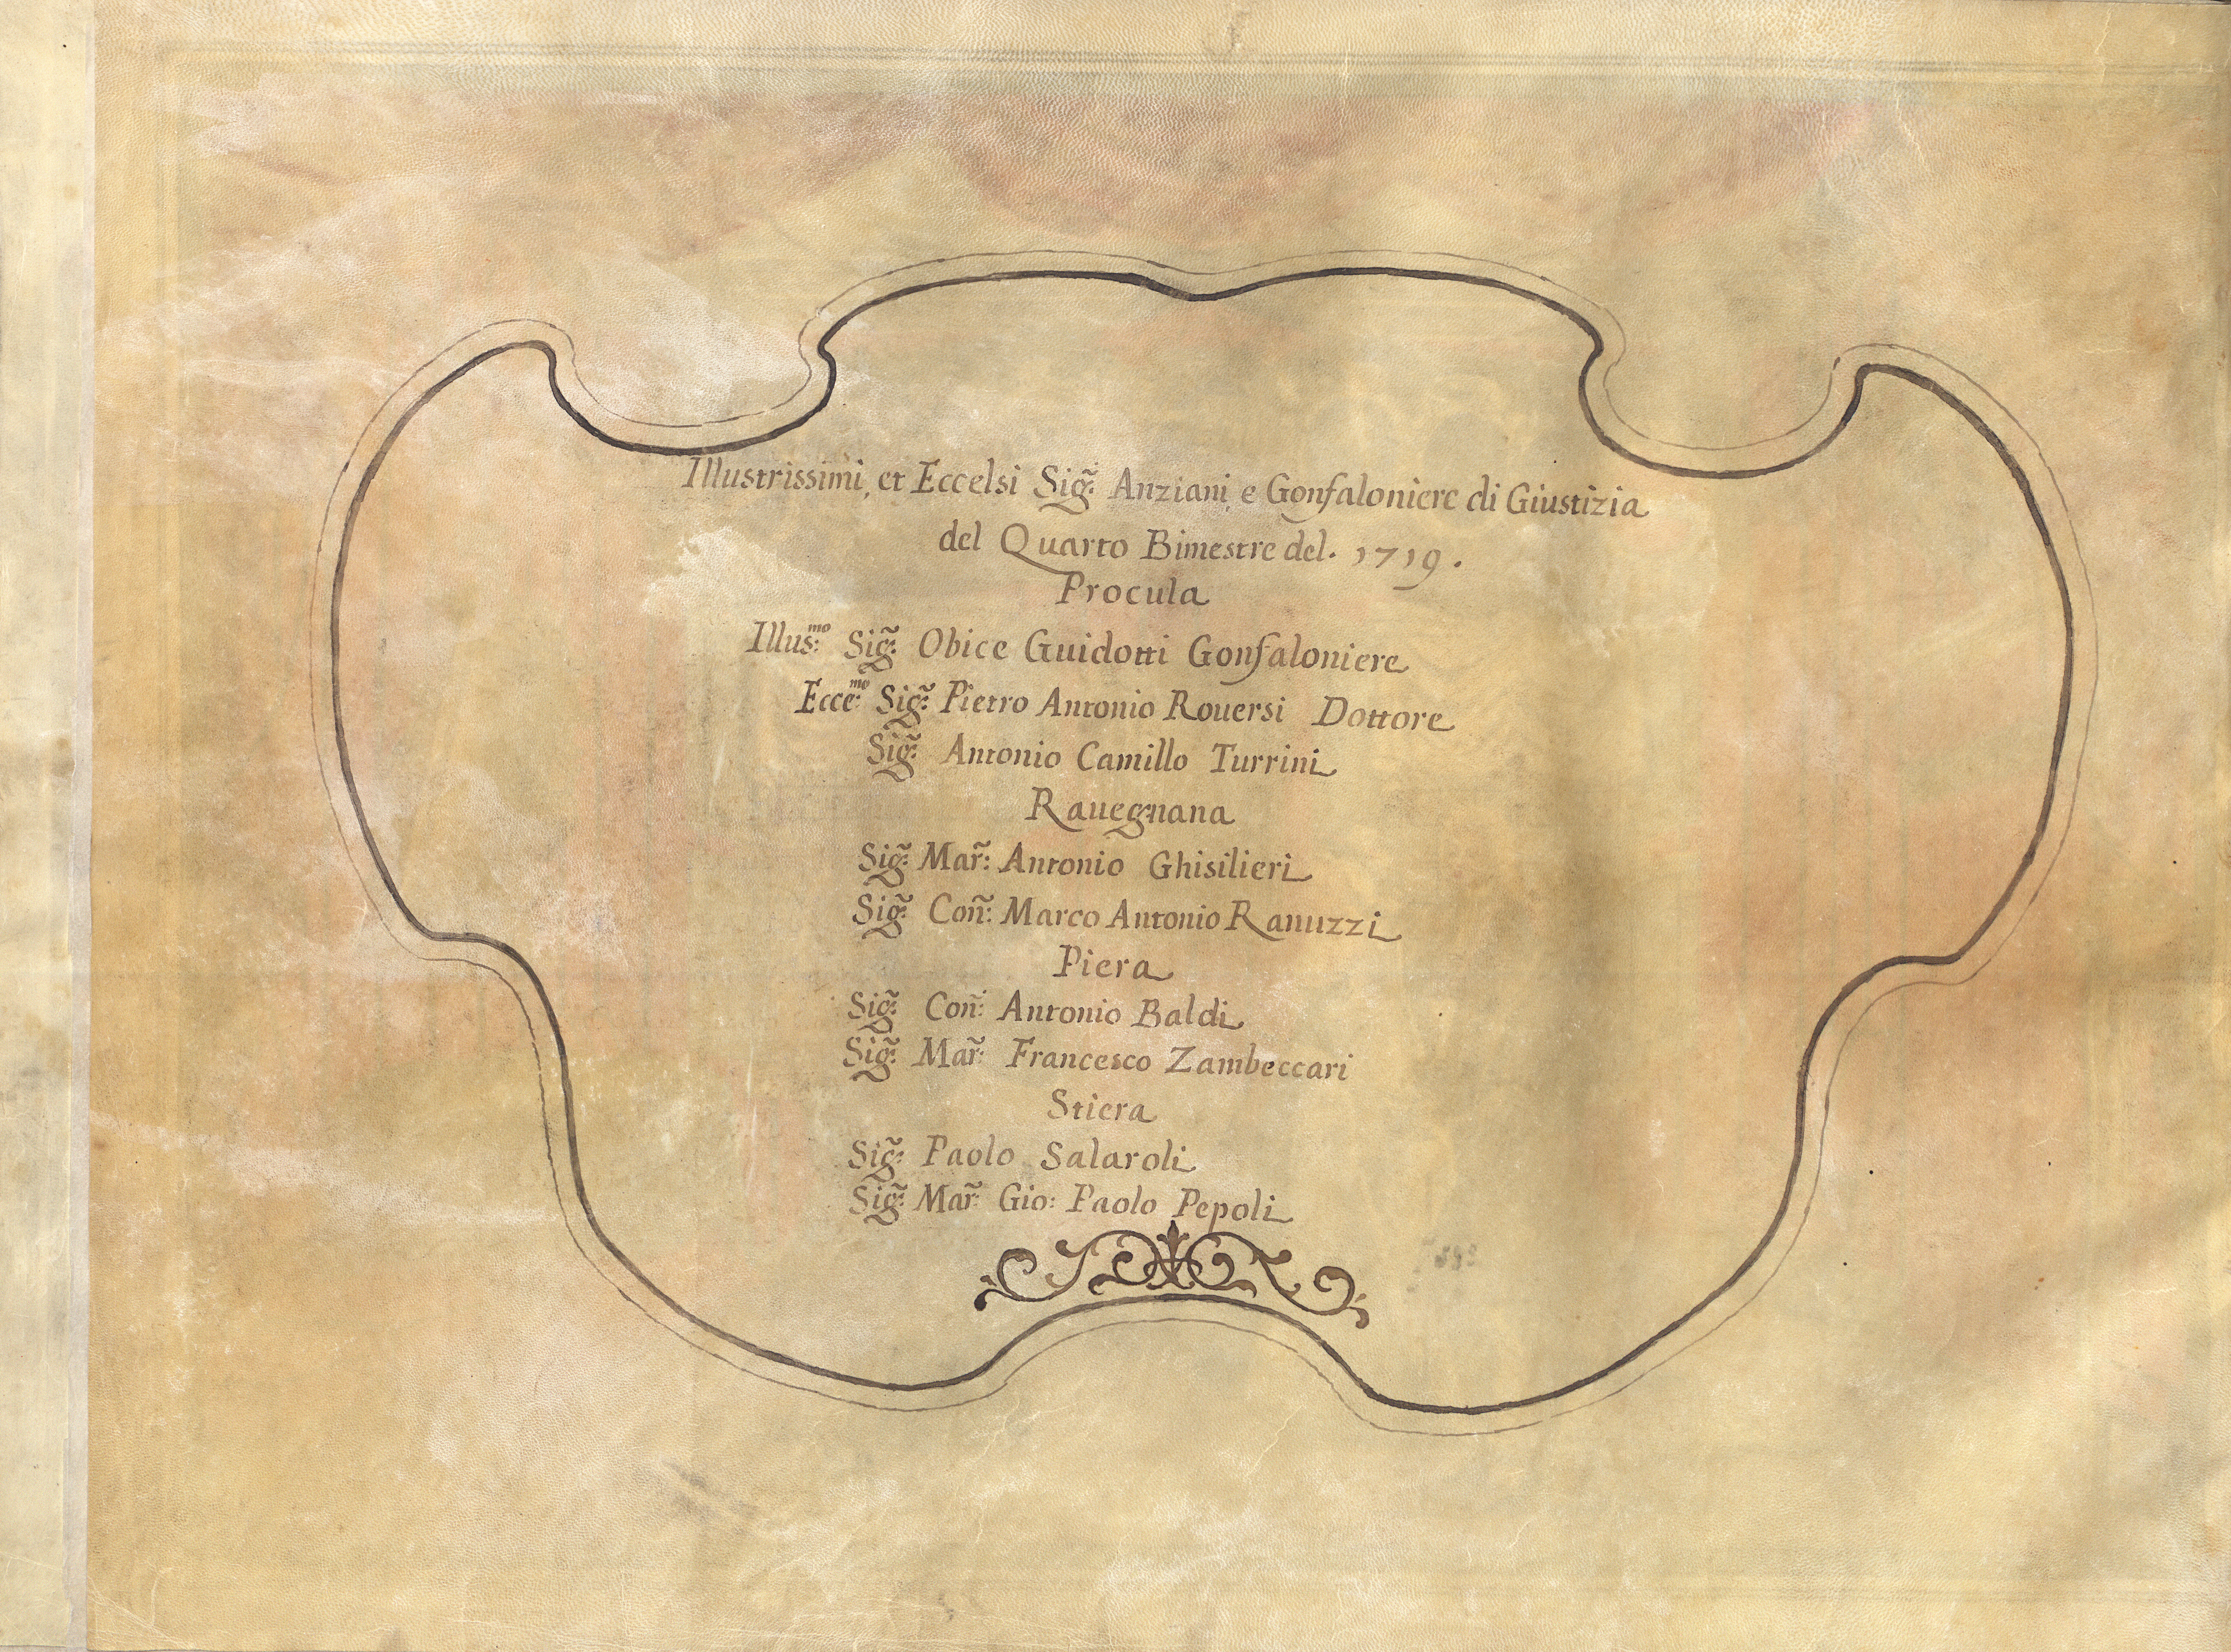 Illustrissimi, et Eccelsi Sig.̃ri Anziani, e Gonfaloniere di Giustizia
del Quarto Bimestre del. 1719.
Procula
Illus:mo Sig̃: Obice Guidotti Gonfaloniere
Ecce:mo Sig̃: Pietro Antonio Rouersi Dottore
Sig̃: Antonio Camillo Turrini
Rauegnana
Sig̃: Mar̃: Antonio Ghisilieri
Sig̃: Coñ: Marco Antonio Ranuzzi
Piera
Sig̃: Coñ: Antonio Baldi
Sig̃: Mar̃: Francesco Zambeccari
Stiera
Sig̃: Paolo Salaroli
Sig̃: Mar̃: Gio: Paolo Pepoli